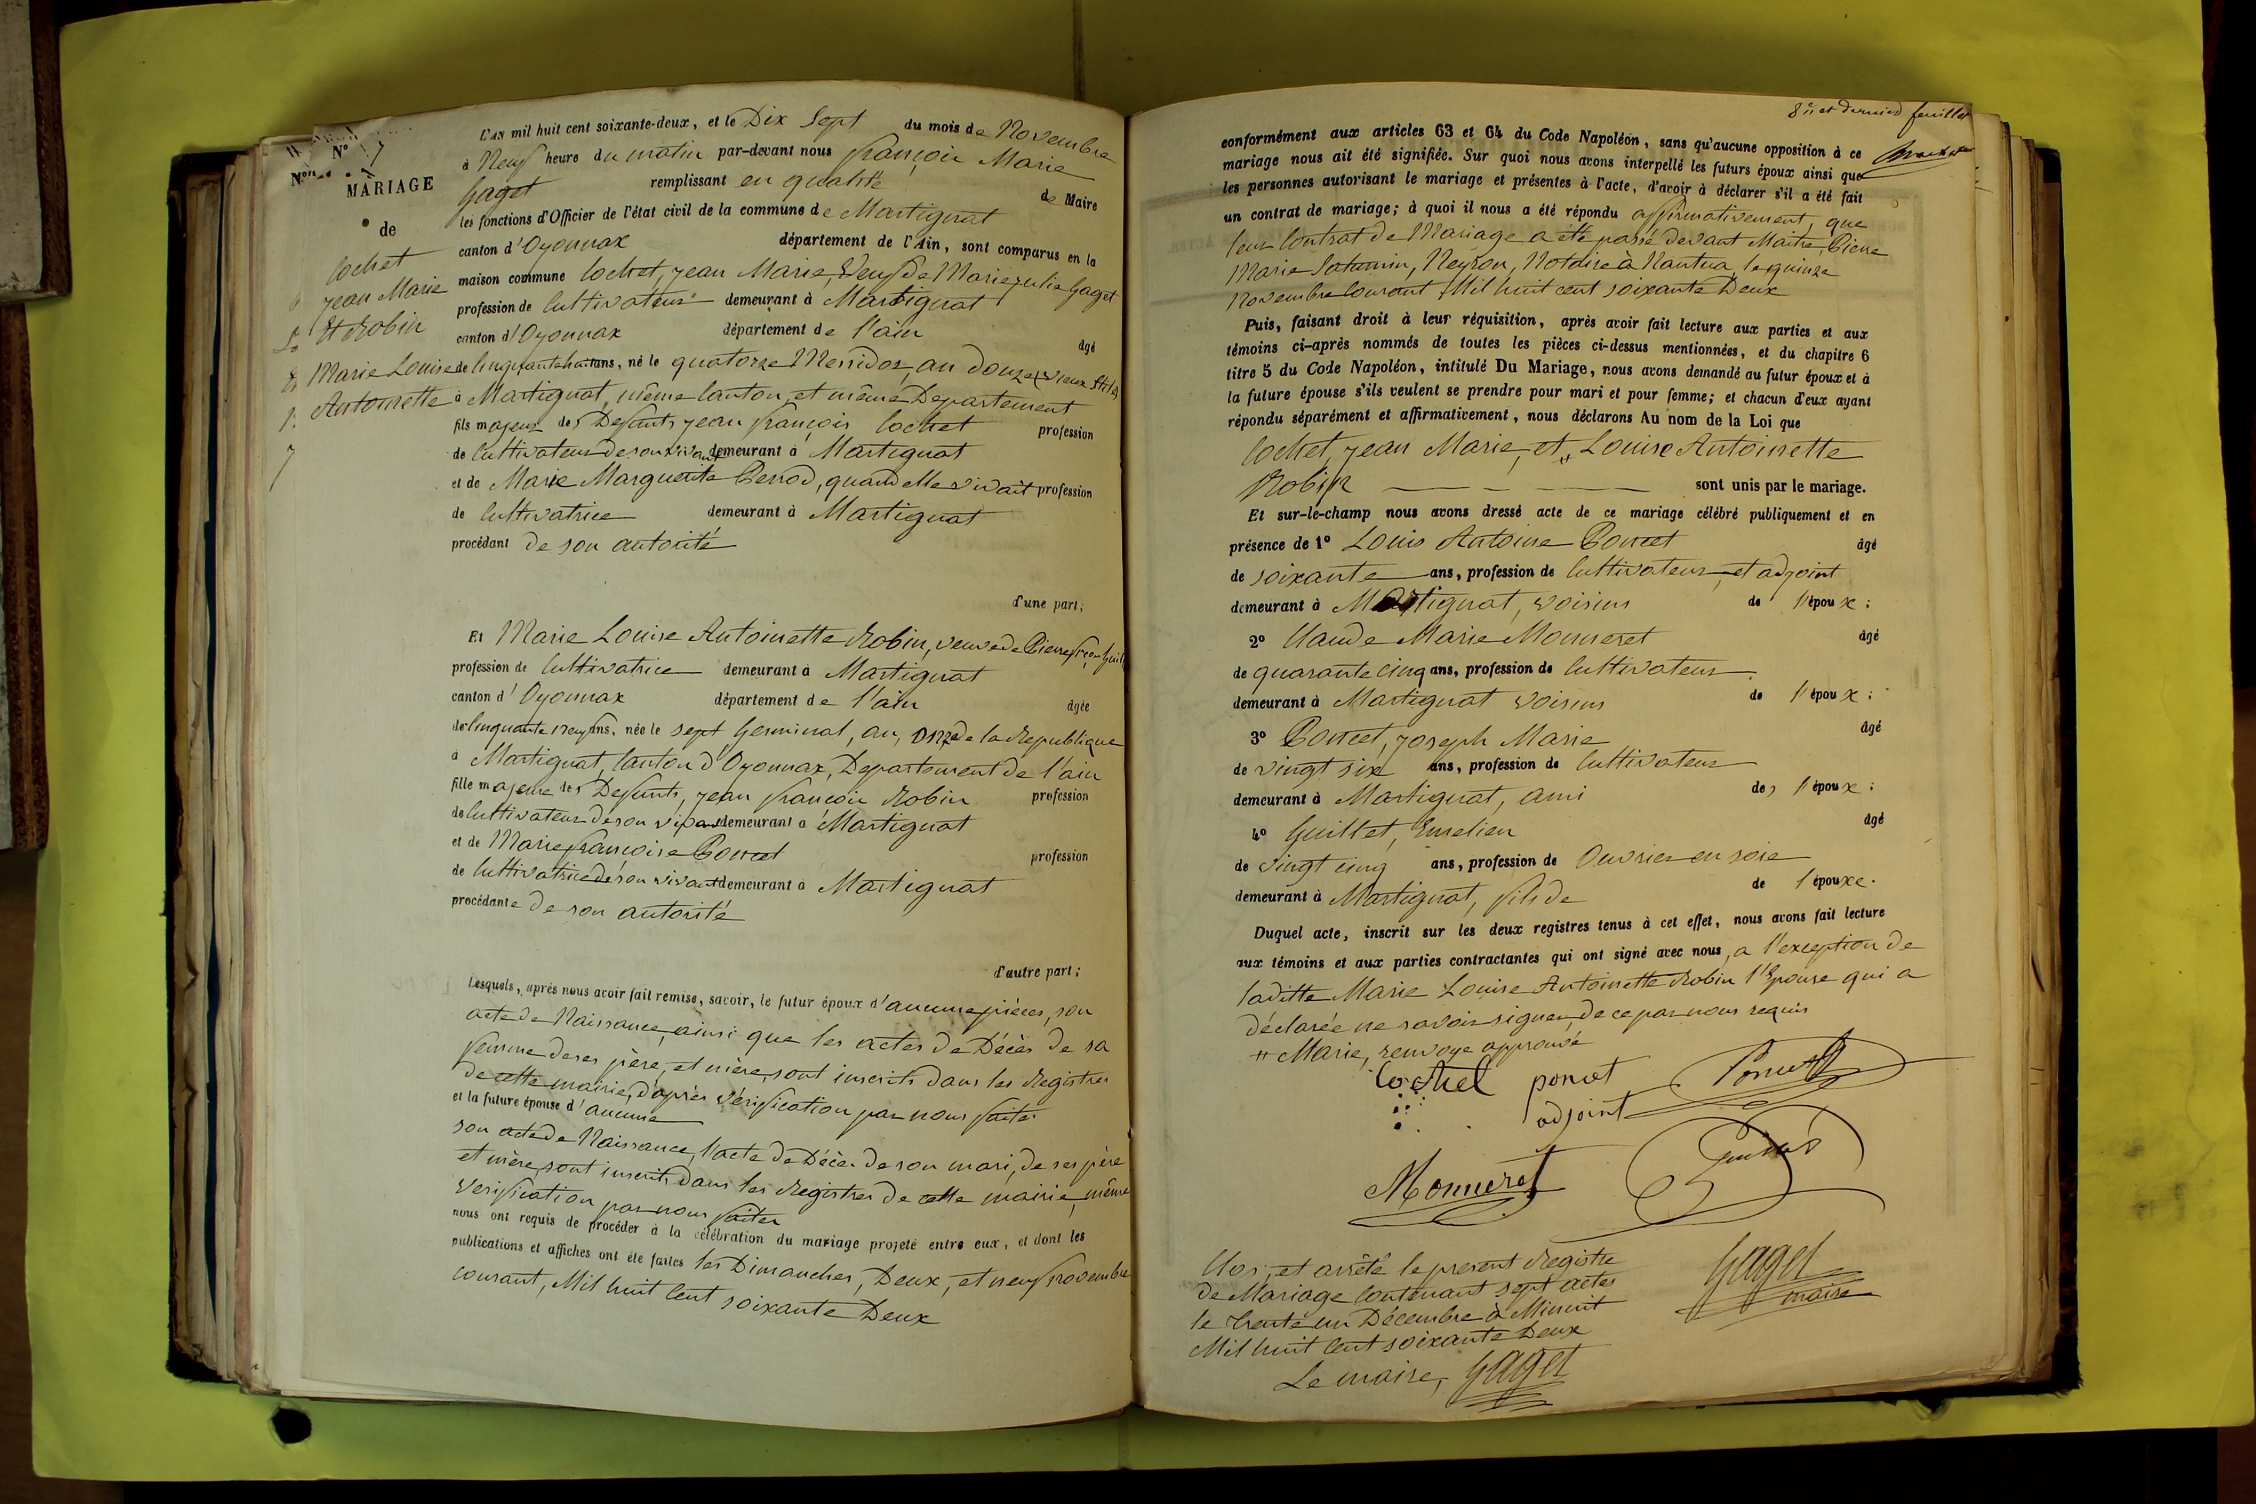 N° 7
MARIAGE
de
Cochet
Jean Marie
Et Robin
Marie Louise
Antoinette
L'AN mil huit cent soixante-deux, et le Dix Sept du mois de Novembre
à Neuf heure du matin par-devant nous françois Marie
Gaget remplissant en qualité de Maire
les fonctions d'Officier de l'état civil de la commune de Martignat
canton d'Oyonnax département de l'Ain, sont comparus en la
maison commune Cochet, Jean Marie, Veuf de Marie Julie Gaget
profession de Cultivateur demeurant à Martignat
canton d'Oyonnax département de l'ain âgé
de Cinquante huit ans, né le quatorze Messidor, an douze (vieux Stile)
à Martignat, même Canton, et même Departement
fils majeur des Defunts Jean françois Cochet profession
de Cultivateur de son vivant demeurant à Martignat
et de Marie Marguerite Perrod, quand elle vivait profession
de Cultivatrice demeurant à Martignat
procédant de son autorité
d'une part;
Et Marie Louise Antoinette Robin, veuve de Pierre
profession de Cultivatrice demeurant à Martignat
canton d'Oyonnax département de l'ain âgée
de Cinquante neuf ans, née le sept Germinal, an, onze de la Republique
à Martignat, Canton d'Oyonnax, Departement de l'ain
fille majeure des Defunts, Jean françois Robin profession
de Cultivateur de son vivant demeurant à Martignat
et de Marie françoise Poncet profession
de Cultivatrice de son vivant demeurant à Martignat
procédante de son autorité
d'autre part;
Lesquels, après nous avoir fait remise, savoir, le futur époux d'aucune pièces, son
acte de Naissance, ainsi que les actes de Décès de sa
femme de ses père, et mère, sont inscrits dans les Registres
de cette mairie, d'après vérification par nous faites
et la future épouse d'aucune
son acte de Naissance, l'acte de Décès de son mari, de ses père
et mère, sont inscrits dans les Registres de cette mairie, même
verification par nous faites
nous ont requis de procéder à la célébration du mariage projeté entre eux, et dont les
publications et affiches ont été faites les Dimanches, Deux, et neuf novembre
courant, Mil huit Cent soixante Deux
8me et dernier feuillet
conformément aux articles 63 et 64 du Code Napoléon, sans qu'aucune opposition à ce
mariage nous ait été signifiée. Sur quoi nous avons interpellé les futurs époux ainsi que
les personnes autorisant le mariage et présentes à l'acte, d'avoir à déclarer s'il a été fait
un contrat de mariage; à quoi il nous a été répondu affirmativement, que
leur Contrat de Mariage a été passé devant Maitre, Pierre
Marie Saturnin, Neyron, Notaire à Nantua, le quinze
Novembre Courant, Mil huit cent soixante Deux
Puis, faisant droit à leur réquisition, après avoir fait lecture aux parties et aux
témoins ci-après nommés de toutes les pièces ci-dessus mentionnées, et du chapitre 6
titre 5 du Code Napoléon, intitulé Du Mariage, nous avons demandé au futur époux et à
la future épouse s'ils veulent se prendre pour mari et pour femme; et chacun d'eux ayant
répondu séparément et affirmativement, nous déclarons Au nom de la Loi que
Cochet, Jean Marie, et # Louise Antoinette
Robin sont unis par le mariage.
Et sur-le-champ nous avons dressé acte de ce mariage célébré publiquement et en
présence de 1° Louis Antoine Poncet âgé
de soixante ans, profession de Cultivateur, et adjoint
demeurant à Martignat, voisins de l'époux;
2° Claude Marie Monneret âgé
de quarante cinq ans, profession de Cultivateur
demeurant à Martignat voisins de l'époux;
3° Poncet, Joseph Marie âgé
de vingt six ans, profession de Cultivateur
demeurant à Martignat, ami des l'époux;
4° Guillet, Emelien âgé
de vingt cinq ans, profession de Ouvrier en soie
demeurant à Martignat, fils de de l'épouxe.
Duquel acte, inscrit sur les deux registres tenus à cet effet, nous avons fait lecture
aux témoins et aux parties contractantes qui ont signé avec nous, a l'exception de
laditte Marie Louise Antoinette Robin l'Epouse qui a
déclarée ne savoir signer, de ce par nous requis
# Marie, renvoye approuvé
Cochet poncet Poncet
adjoint
Monneret
Clos, et arrêté le present Registre
de Mariage Contenant sept actes
le trente un Décembre à Minuit
Mil huit Cent soixante Deux
Le maire, Gaget
Gaget
maire